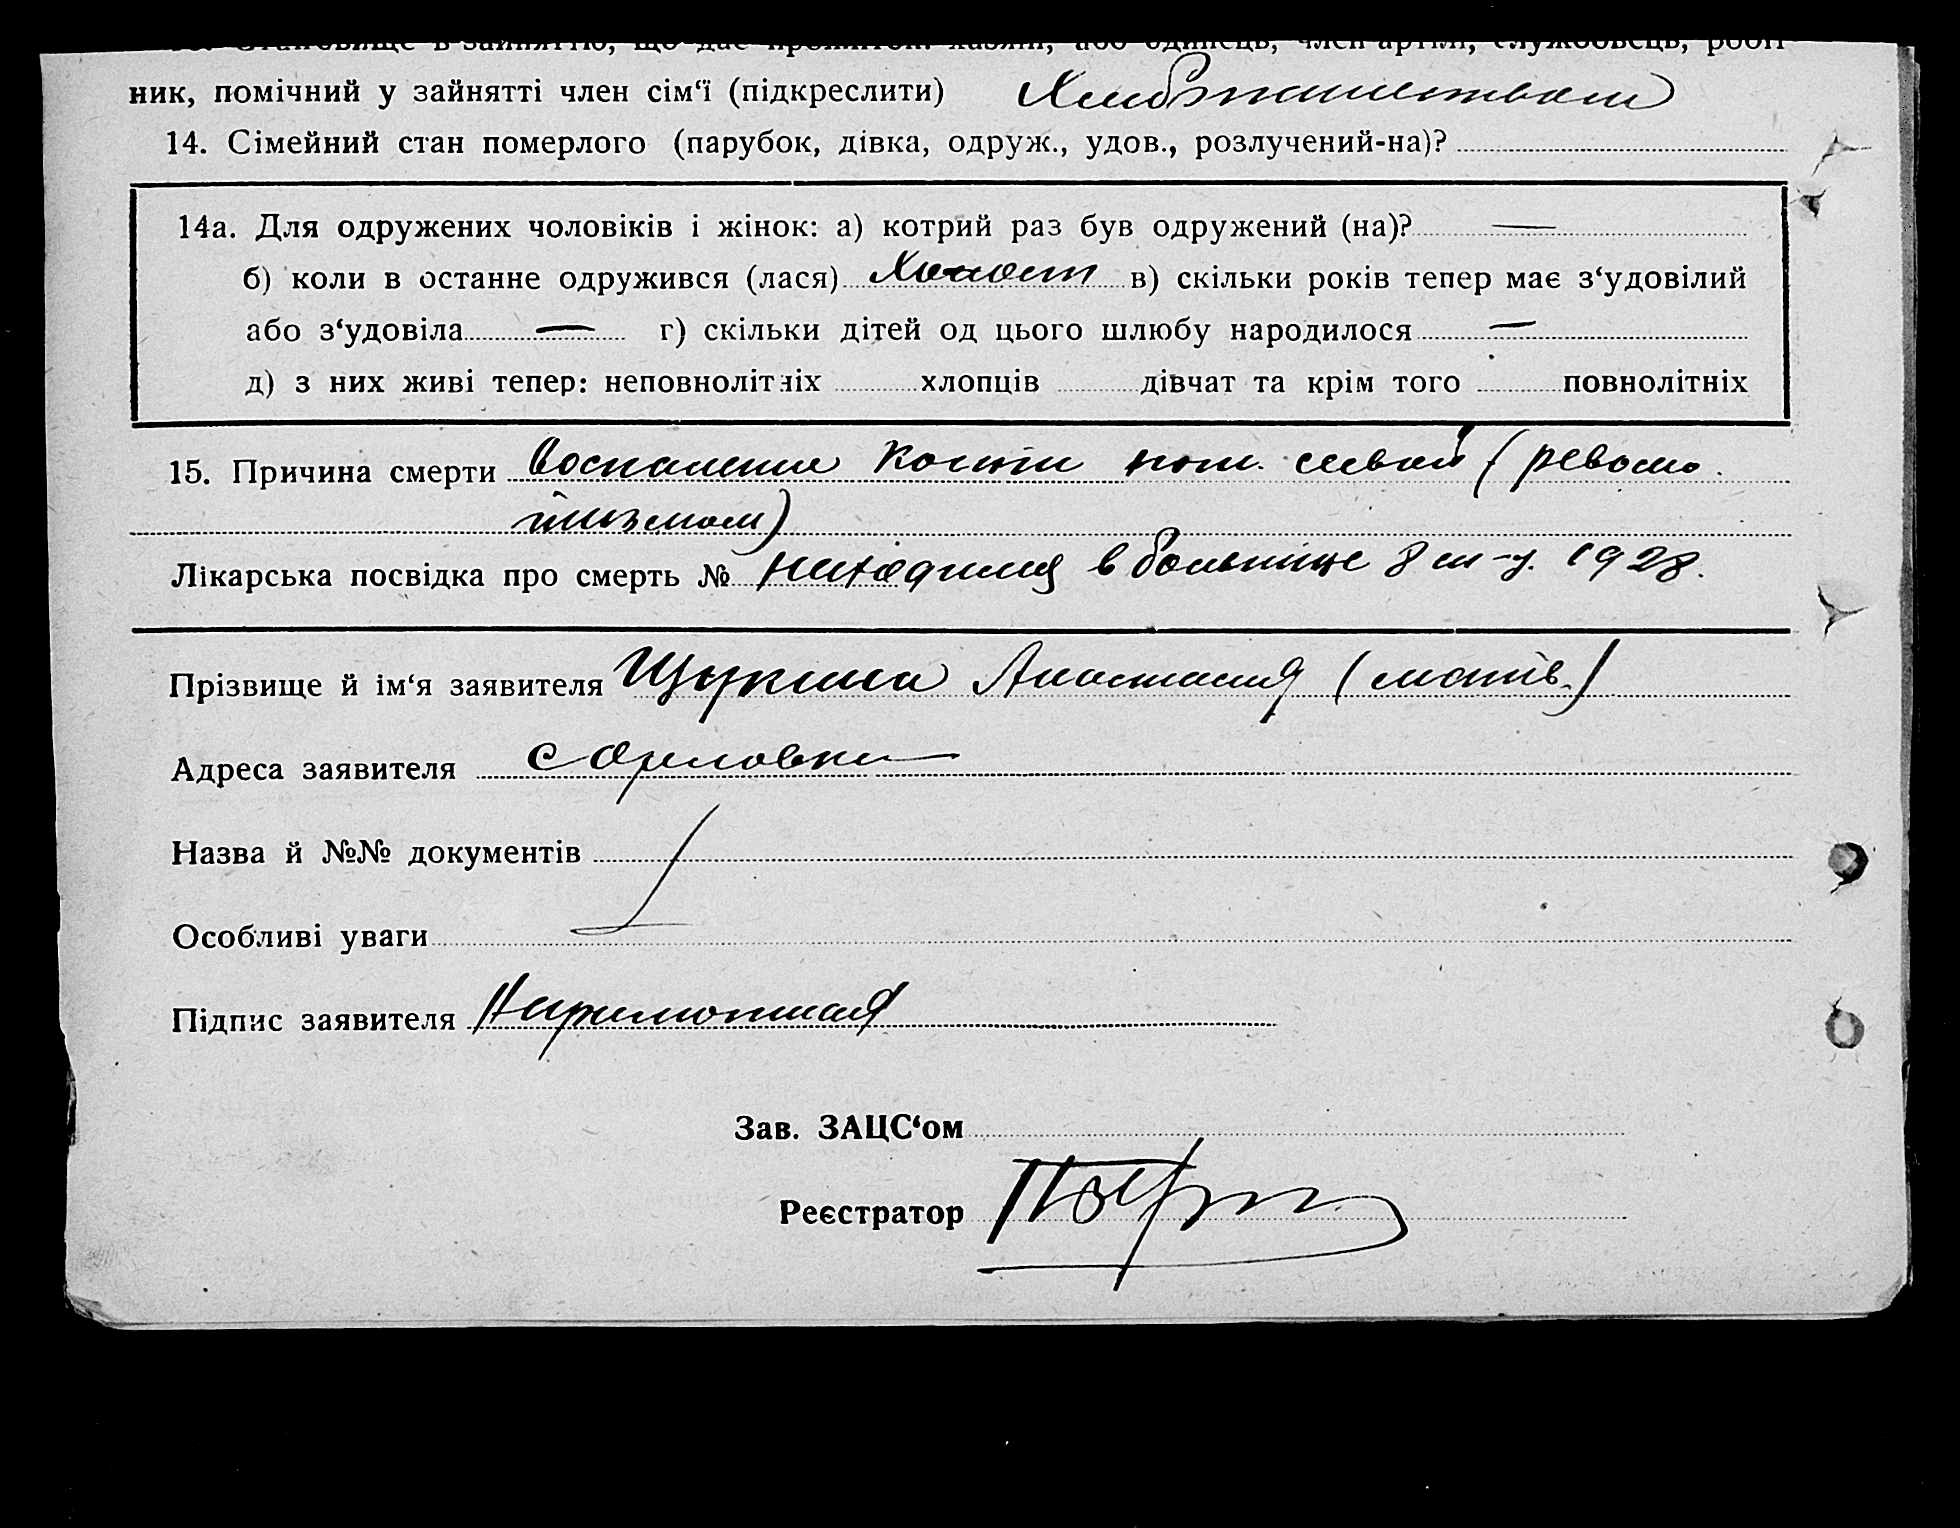 13. Становище в зайняттю, що дає прожиток: хазяїн, або одинець, член артілі, службовець, робіт
ник, помічний у зайнятті член сім‘ї (підкреслити) Хлебопашеством
14. Сімейний стан померлого (парубок, дівка, одруж., удов., розлучений-на)?
14а. Для одружених чоловіків і жінок: а) котрий раз був одружений (на)? —
б) коли в останне одружився (лася) Холост в) скільки років тепер має з‘удовілий
або з‘удовіла — г) скільки дітей од цього шлюбу народилося —
д) з них живі тепер: неповнолітніх хлопців дівчат та крім того повнолітніх
15. Причина смерти Воспаление кости левой (ревма
тизмом)
Лікарська посвідка про смерть № находился в больнице 8 1928.
Прізвище й ім‘я заявителя Щукина Анастасия (мать)
Адреса заявителя с Орловка
Назва й №№ документів
Особливі уваги
Підпис заявителя Неграмотная
Зав. ЗАЦС‘ом
Реєстратор